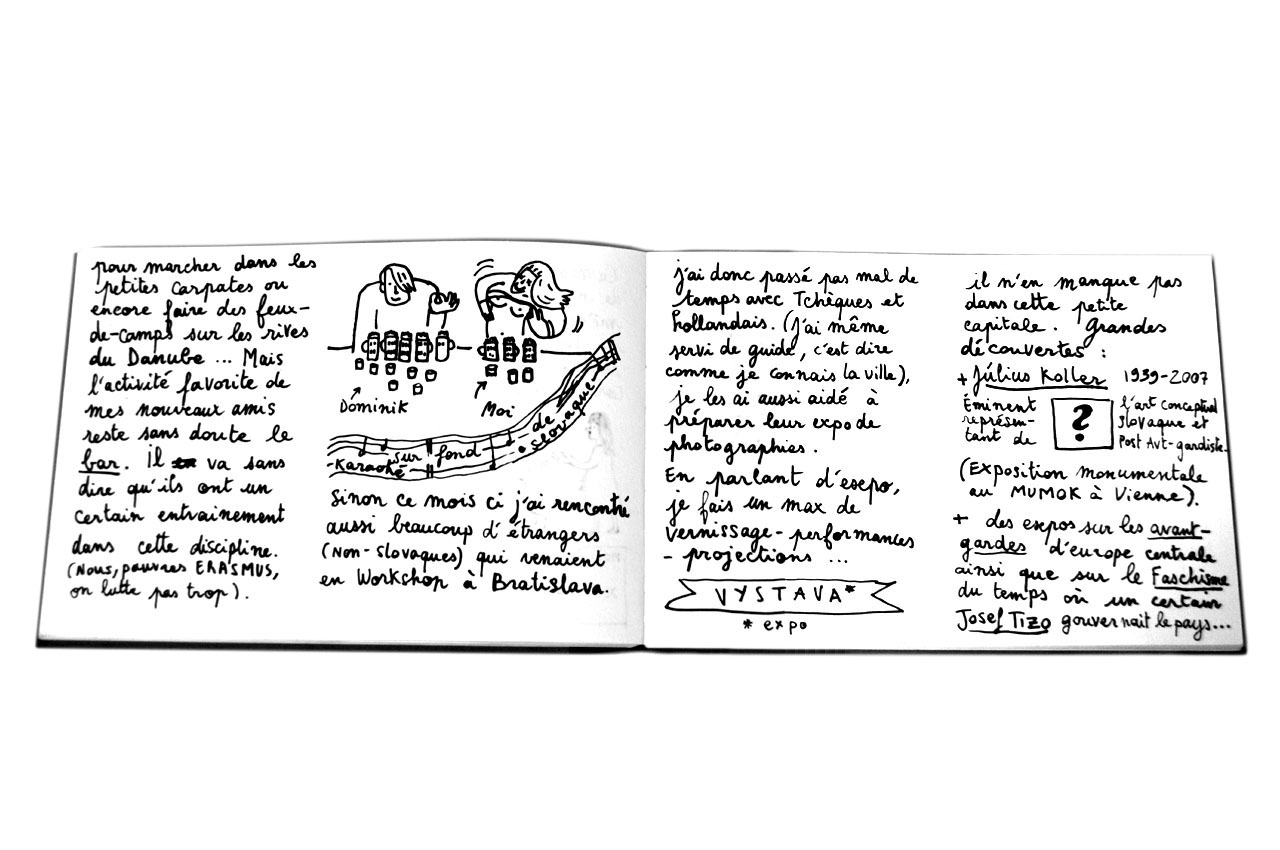 pour marcher dans les
petites Carpates ou
encore faire des feux-
de-camps sur les rives
du Danube ... Mais
l'activité favorite de
mes nouveaux amis
reste sans doute le
bar. Il va sans
dire qu'ils ont un
certain entrainement
dans cette discipline.
(Nous, pauvres ERASMUS,
on lutte pas trop).
Dominik
Moi
-Karaoké sur fond de slovaque
Sinon ce mois ci j'ai rencontré
aussi beaucoup d'étrangers
(Non-Slovaques) qui venaient
en Workshop à Bratislava.
j'ai donc passé pas mal de
temps avec Tchèques et
hollandais. (J'ai même
servi de guide, c'est dire
comme je connais la ville),
je les ai aussi aidé à
préparer leur expo de
photographies.
En parlant d'expo,
je fais un max de
Vernissage-performances
- projections ...
VYSTAVA*
* expo
il n'en manque pas
dans cette petite
capitale. Grandes
découvertes :
+ Július Koller 1939-2007
Éminent
représen-
tant de
?
l'art conceptual
Slovaque et
Post Avt-gardiste.
(Exposition monumentale
au MUMOK à Vienne).
+ des expos sur les avant-
gardes d'europe centrale
ainsi que sur le Faschisme
du temps où un certain
Josef Tizo gouvernait le pays...